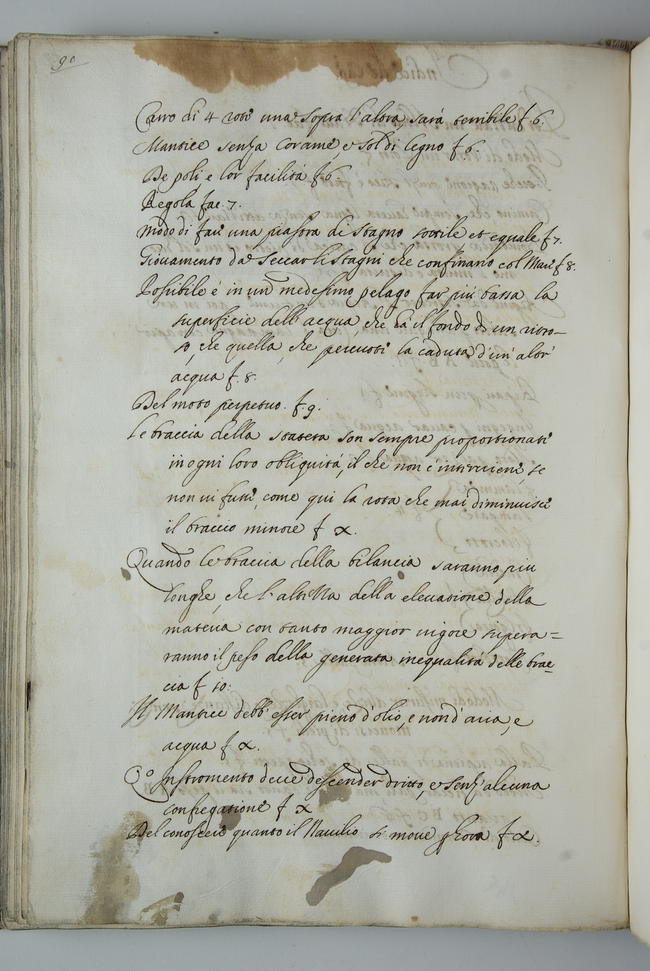 90
Carro di 4 rote una sopra l'altra, sarà terribile f. 6.
Mantice senza corame, e sol di legno f. 6.
De poli, e lor facilità f. 6.
Regola fac. 7.
Modo di far una piastra di stagno sottile et equale f. 7.
Giovamento da seccar li stagni che confinano col Mare f. 8.
Possibile è in un medesimo pelago far più bassa la
superficie dell'acqua, che hà il fondo di un ritro-
so, che quella, che percuote la caduta d'un' altr'
acqua f. 8.
Del moto perpetuo. f. 9.
Le braccia della statera son sempre proportionate
in ogni loro obliquità, il che non è interviene, se
non vi fusse, come qui la rota che mai diminuisce
il braccio minore f. x.
Quando le braccia della bilancia saranno piu
longhe, che l'altezza della eleuatione della
materia con tanto maggior uigore supera=
ranno il peso della generata inequalità delle brac-
cia f. 10.
Il Mantice debb' esser pieno d'olio, e non d'aria, e
acqua f. x.
Instromento deue descender dritto, e senz' alcuna
confregatione f. x
Del conoscere quanto il Nauilio si moue p hora f. x.